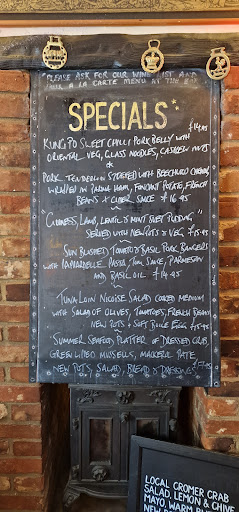 PLEASE ASK FOR OUR WINE LIST AND
A LA CARTE MENU AT THE BAR
SPECIALS
KUNG PO SWEET CHILLI PORK BELLY WITH £14.95
ORIENTAL VEG, GLASS NOODLES, CASHEW NUTS
PORK TENDERLOIN STUFFED WITH
WRAPPED IN PARMA HAM, FONDANT POTATO, FRENCH
BEANS & CIDER SAUCE £16.95
"GUINNESS, LAMB, LENTIL & MINT SUET PUDDING"
SERVED WITH NEW POTS & VEG £15.95
SUN BLUSHED TOMATO & BASIL PORK BANGERS
WITH PAPPARDELLE PASTA, TOM SAUCE, PARMESAN
AND BASIL OIL £14.95
TUNA LOIN NICOISE SALAD COOKED MEDIUM
WITH SALAD OF OLIVES, TOMATOES, FRENCH BEANS
NEW POTS & SOFT BOILED EGG £15.95
SUMMER SEAFOOD PLATTER OF DRESSED CRAB,
GREEN LIPPED MUSSELS, MACKEREL PATE,
NEW POTS, SALAD, BREAD & DRESSING
LOCAL CROMER CRAB
SALAD, LEMON & CHIVE
MAYO, WARM